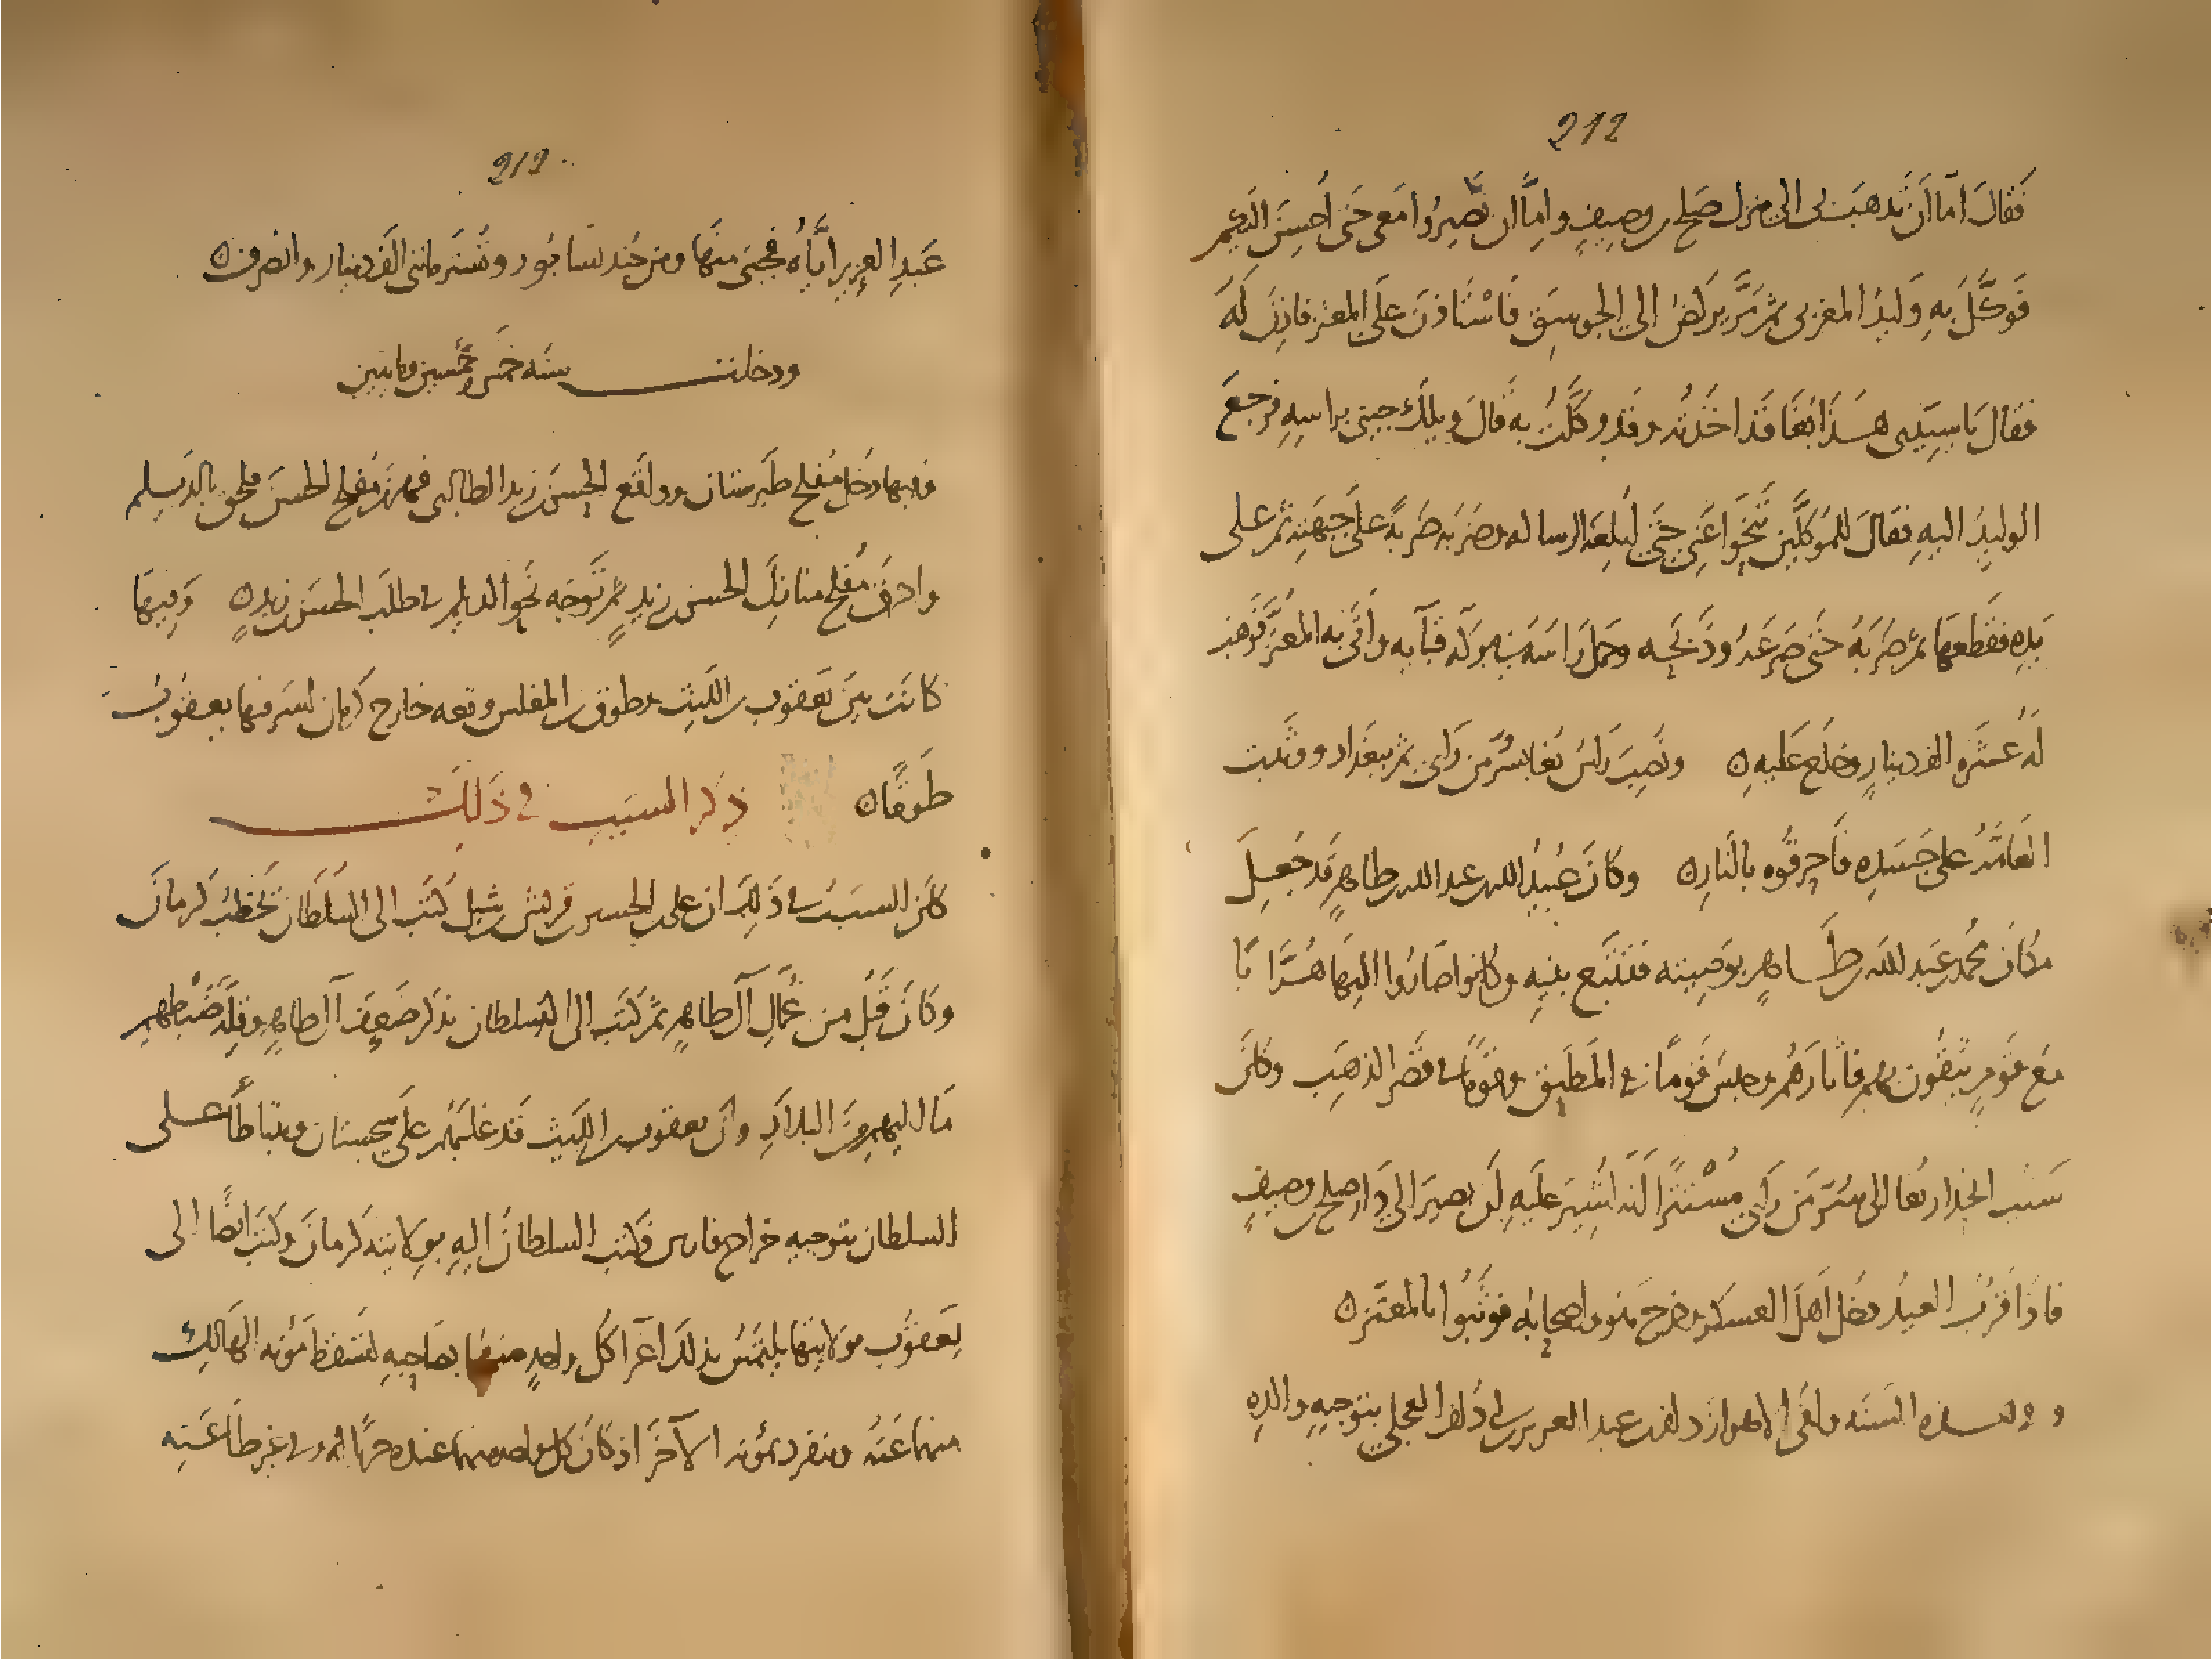 212
فَقَالَ اِمّا اَن تَذهَبَ بى الى منزل صَلح بن وصِيفٍ واِمّا ان تصِيرُوا مَعى حَتى اُحسِنَ اليكم
فَوكَّلَ بِهِ وَليدُ المغربى ثم مَرّ يركضُ الى الجوسَق فَاسْتَاذنَ عَلى المعتز فاذِنَ لَهُ
فقال يَا سيّدى هــذَا بُغَا قَد اخَذتُه وقد وكّلتُ به قالَ ويلكَ جينى براسِهِ فرجعَ
الوليدُ اليهِ فقالَ للموكّلين تنحَّوا عَنى حَتى ابلِغَه الرساله وضَربَه ضَربةً على جَبهَته ثم على
يَدِهِ فقطعهَا ثم ضرَبَهُ حَتى صَرعَهُ وذَبحَه وحمَل رَاسَه فى بركه قَبآيه واَتى به المعتزّ فوهَب
لَهُ عشَره الف دينارٍ وخلَع عَليهِ ٥ ونُصِبَ رَاسُ بُغَا بسُرّ مَن رَاى ثم ببغدَاد ووثَبت
العَامَّهُ على جَسَدِه فَاحرقُوه بالنّارِ ٥ وكانَ عُبيدُ الله بن عبد الله بن طاهرٍ قَد جَعِلَ
مكان محُمد بن عَبد لله بن طــاهرٍ بوَصِيته فتتَبّع بنيهِ وكانوا صَارُوا اليهَا هُرَّابًا
مَع قَومٍ يثِقُون بهم فاثارَهُم وحبسَ قَومًا فى المَطبق وقَومًا فى قَصر الذهَبِ وكان
سَبَب انحدار بغا الى سُرّ مَن رَاى مُسْتترًا انّه اُشيرَ علَيهِ ان يصيرَ الى دَار صلح بن وصيفٍ
فاذَا قرُب العيدُ دخَل اَهلُ العسكر وخرج هو واصحابُه فوثَبُوا بالمعتَز ٥
وفى هــذه السَنه وافَى الاهواز دلف بن عبد العزيز بن ابى دُلف العجلى بتوجيهِ والدِهِ
212
عَبدِ العزيز ايّاهُ فجَبى منهَا ومن جُند سَابُور وتُستَر مائتى الف دينار وانصرف ٥
ودخلت سَنه خمس وخَمسين ومايتين
فيها دخَل مُفلح طَبرستان وواقَع الحسن بن زيد الطالبى فهزَم مُفلح الحسَن فلحق بالديلم
واحرَق مُفلح منازلَ الحسن بن زيدٍ ثم توَجّه نَحو الديلم فى طلَب الحسَن بن زيدٍ ٥ وَفيهَا
كانَت بَين يَعقوب بن الليث وطوق بن المغلس وقعه خارج كرمان اسَر فيها يعقوبُ
طَوقًا ٥ ذكر السبَبِ فى ذلِكَ
كان السبَبُ فى ذلِكَ ان على بن الحسين بن قريش بن شبل كتَب الى السُلطان يَخطُبُ كرمان
وكانَ قَبلُ من عُمّالِ آل طاهرٍ ثم كتَب الى السلطان يذكر ضَعفَ آل طاهرٍ وقِلّه ضَبْطهِم
مَا اليهم مِنَ البلادِ وانّ يعقوب بن الليث قَد غلَبهُم على سجستان وتباطأ عــلى
السلطان بتوجيه خراج فارس فكتب السلطانُ اليهِ بولايته كرمانَ وكتبَ ايضًا الى
يَعقُوب بولايتها يلتمسُ بذلكَ اغرآ كُل واحدٍ منهما بصَاحِبهِ ليَسقطَ مَؤنه الهالكِ
منهما عَنهُ وينفرد بمَؤنه الآخَر اذ كانَ كل واحد منهما عنده حربًا له وفى غير طَاعَتِه